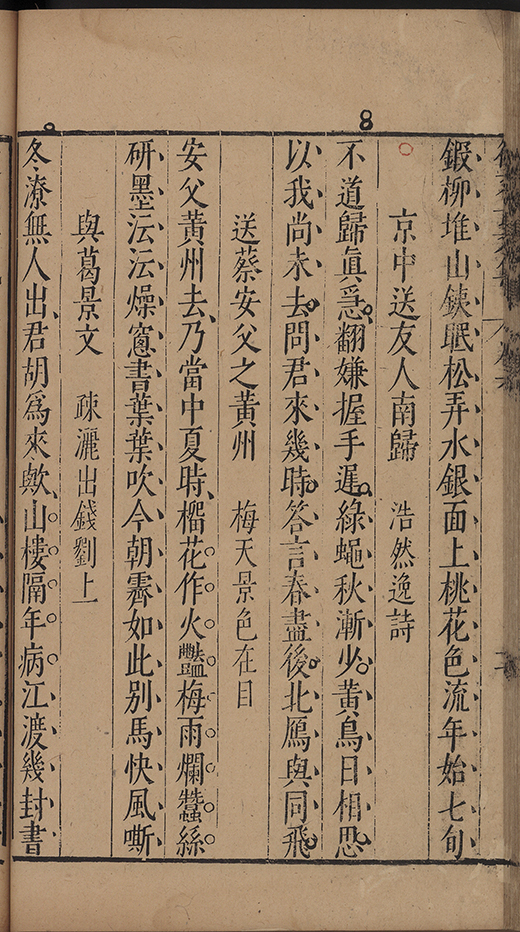 8
鍛柳堆山鋏眠松弄水銀面上桃花色流年始七旬
京中送友人南歸　浩然逸詩
不道歸眞急翻嫌握手遲綠蠅秋漸少黃鳥日相思
以我尚未去問君來幾時答言春盡後北鴈與同飛
送蔡安父之黃州　梅天景色在目
安父黃州去乃當中夏時榴花作火豔梅雨爛蠶絲
研墨沄沄燥窻書葉葉吹今朝霽如此别馬快風嘶
與葛景文　疎灑出錢劉上一
冬潦無人出君胡爲來歟山樓隔年病江渡幾封書